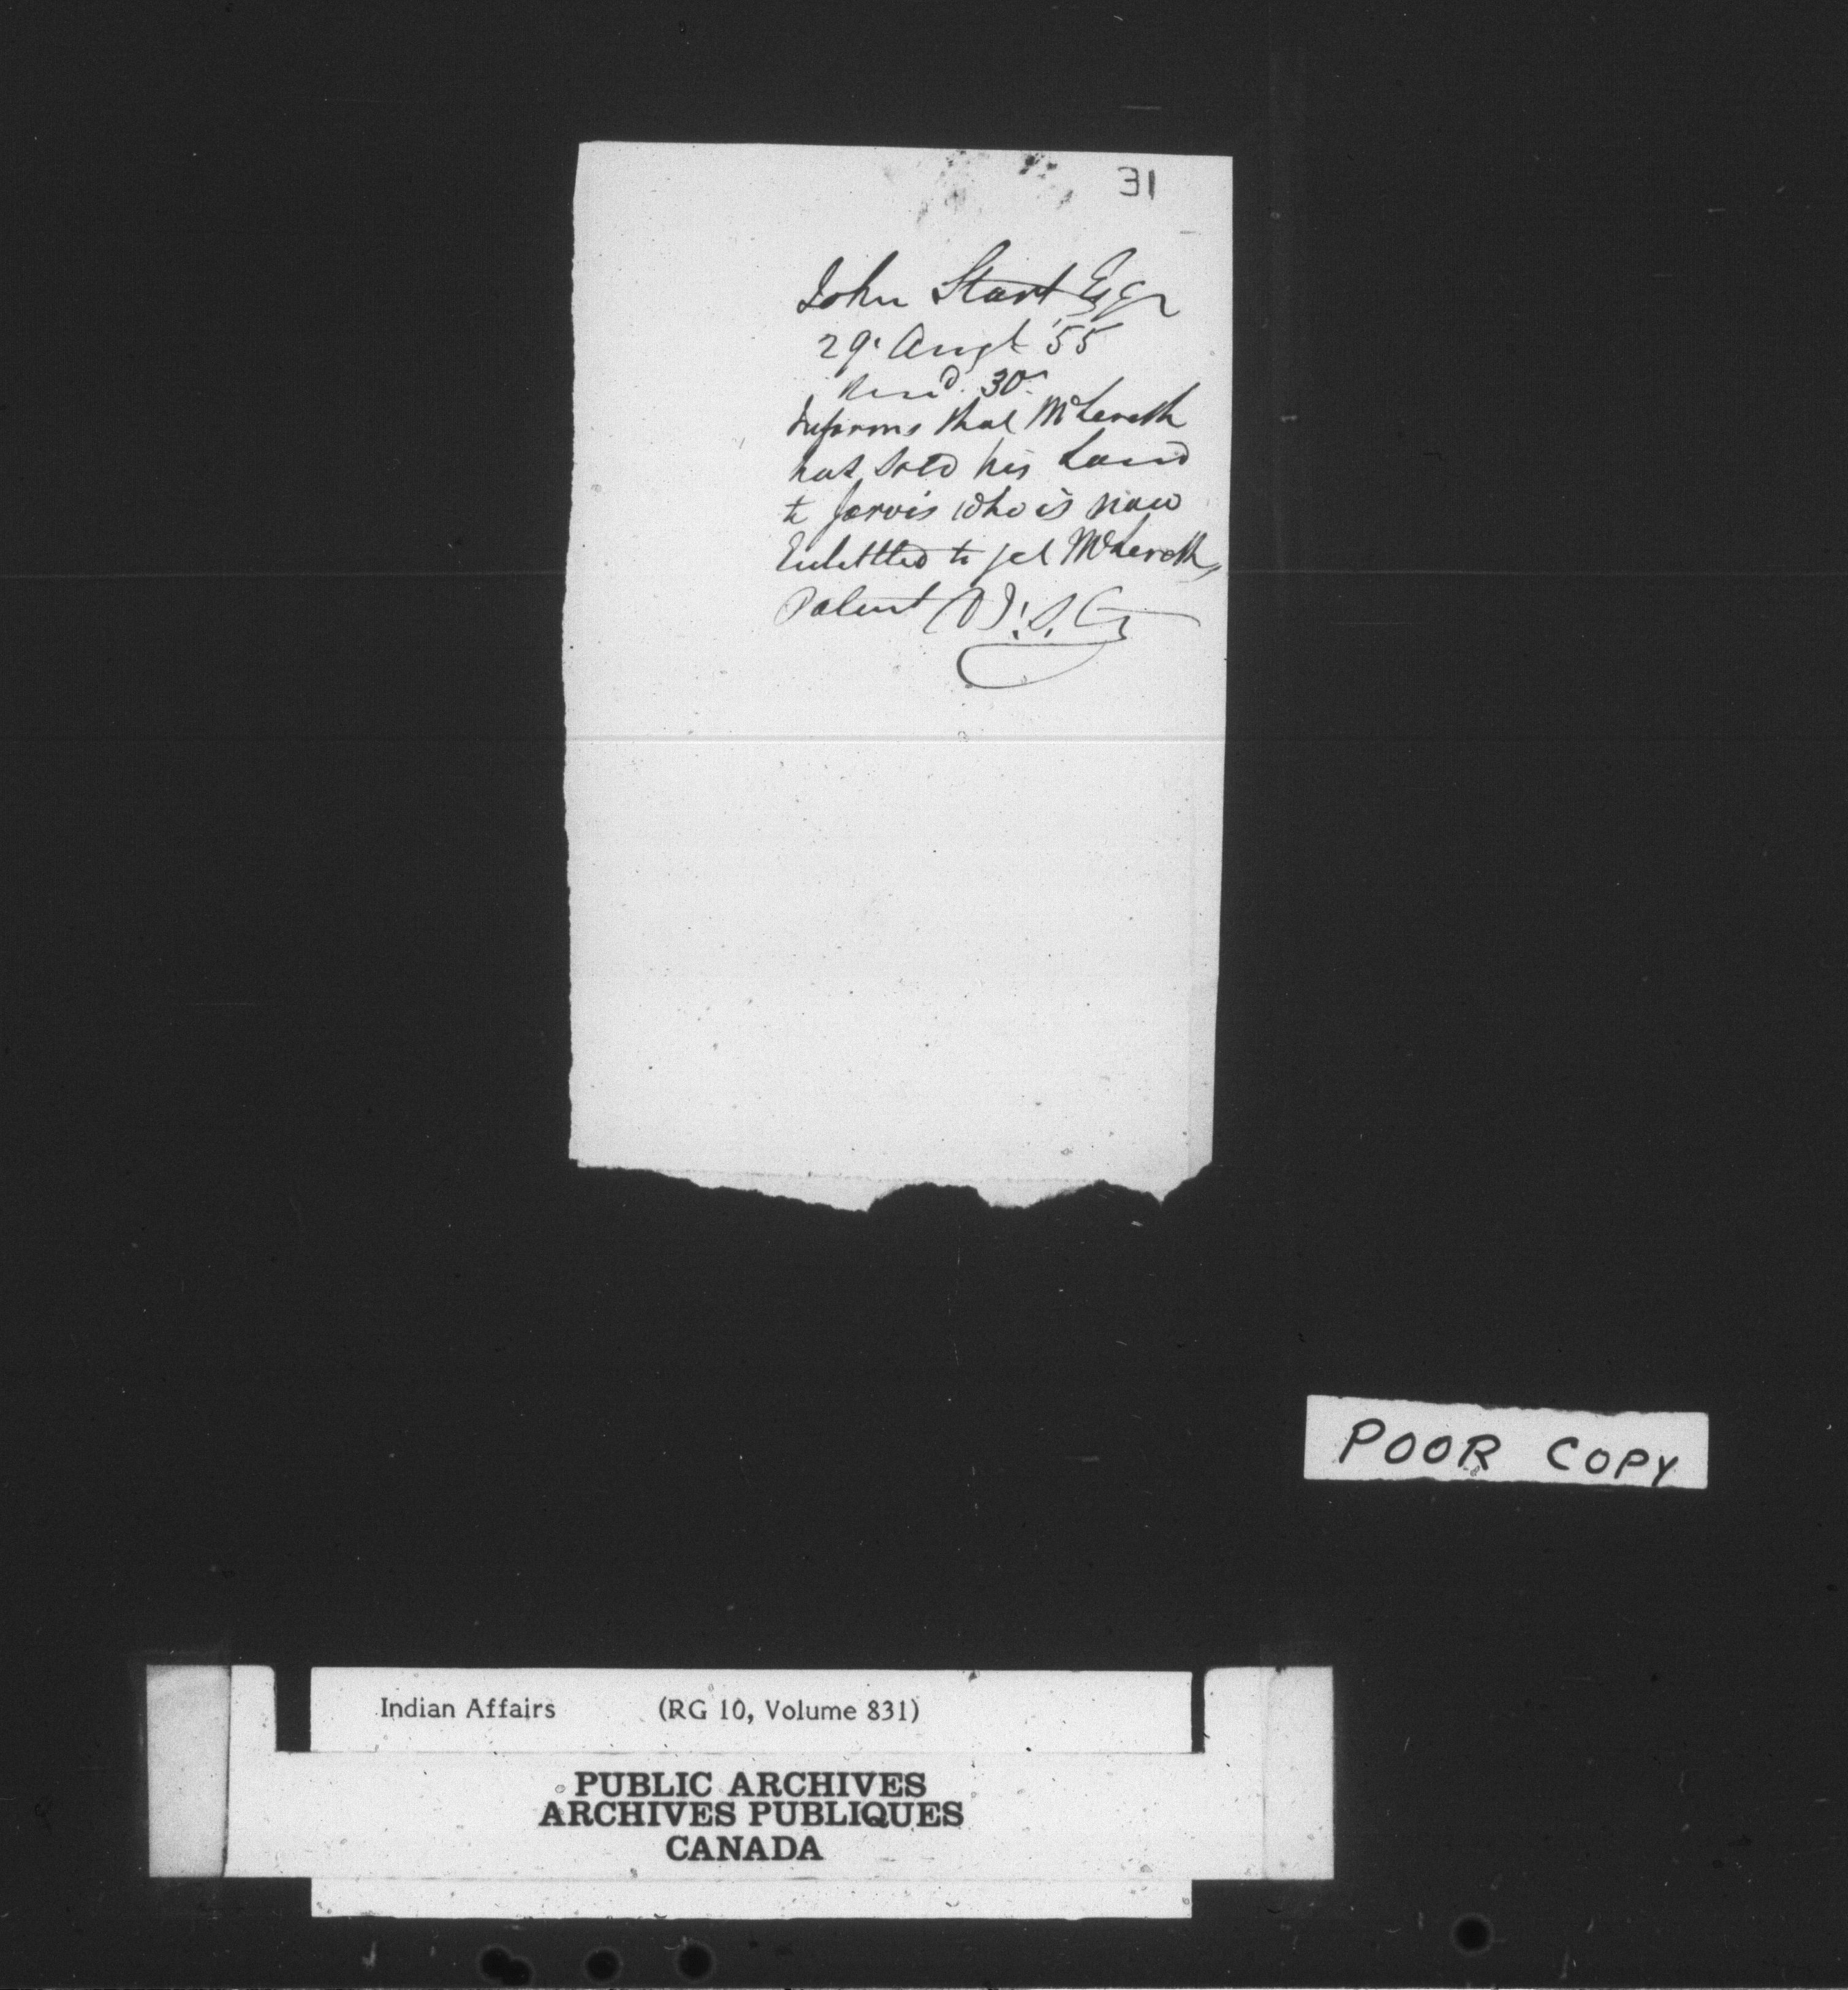 31
John Start Esqr
29. Augt '55
Recd. 30
Informs that
has sold his Land
to Jarvis who is now
Entittled to get
Patent
POOR COPY
Indian Affairs (RG 10, Volume 831)
PUBLIC ARCHIVES
ARCHIVES PUBLIQUES
CANADA